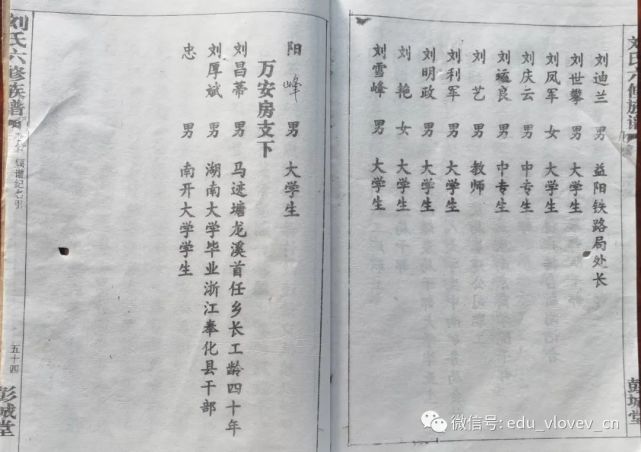 刘氏六修族谱
刘迪兰 男 益阳铁路局处长
刘世攀 男 大学生
刘凤军 女 大学生
刘庆云 男 中专生
刘 良 男 中专生
刘艺 男 教师
刘利军 男 大学生
刘明政 男 大学生
刘艳 女 大学生
刘雪峰 男 大学生
彭城堂
阳峰 男 大学生
万安房支下
刘昌蒂 男 马迹塘龙溪首任乡长工龄四十年
刘厚斌 男 湖南大学毕业浙江奉化县干部
忠 男 南开大学学生
刘氏六修族谱
五十四
彭城堂
微信号: edu_vlovev_cn